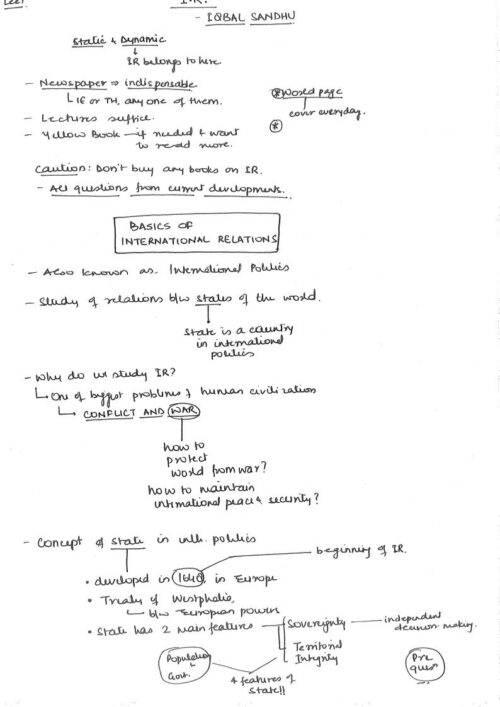 I.R.
- IQBAL SANDHU
Static & Dynamic
IR belongs to here.
- Newspaper ⇒ indispensable
IE or TH, any one of them.
* World page
cover everyday.
- Lectures suffice.
*
- Yellow Book - if needed & want
to read more.
Caution: Don't buy any books on IR.
- All questions from current developments.
BASICS OF
INTERNATIONAL RELATIONS
- Also known as International Politics
- Study of relations b/w states of the world.
State is a country
in international
politics
- Why do we study IR?
One of biggest problems of human civilization
CONFLICT AND WAR
how to
protect
world from war?
how to maintain
international peace & security?
- Concept of state in intl. politics
beginning of IR.
• developed in 1648, in Europe
• Treaty of Westphalia
b/w European powers
• State has 2 main features
Sovereignty
independent
decision-making.
Territorial
Integrity
Population
Govt.
4 features of
state!!
Pre
ques